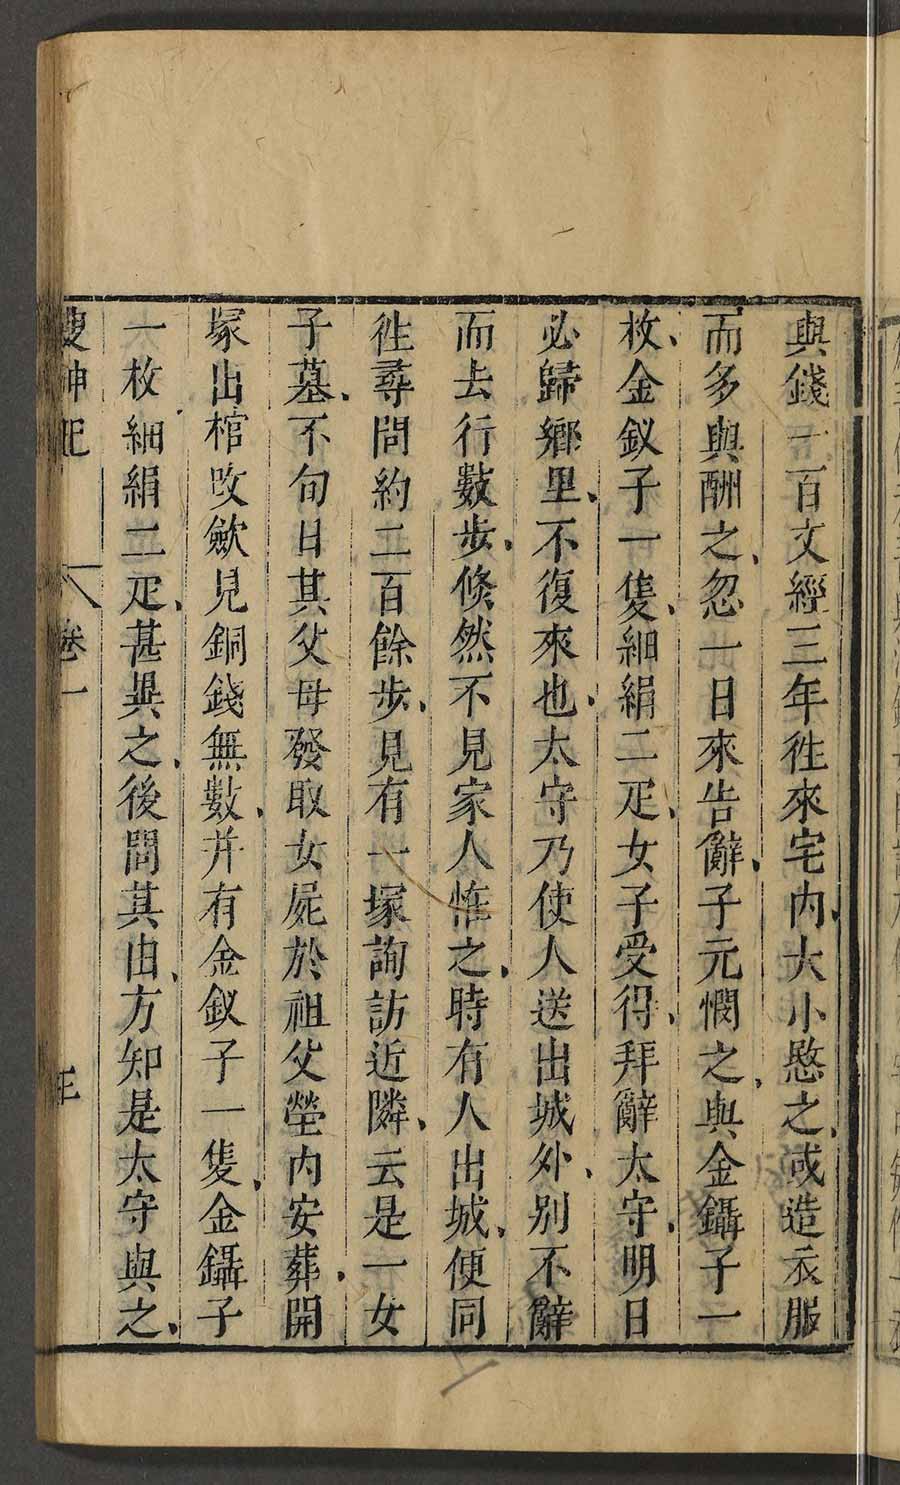 與錢一百文經三年徃來宅內、大小愍之、或造衣服
而多與酬之、忽一日來告辭、子元憫之、與金鑷子一
枚、金釵子一隻、細絹二疋、女子受得、拜辭太守、明日
必歸鄉里、不復來也、太守乃使人送出城外、别不辭
而去行數步、倏然不見家人恠之、時有人出城、便同
徃尋問約二百餘步、見有一塚詢訪近隣、云是一女
子墓、不旬日其父母發取女屍於祖父塋内安葬、開
塚出棺攺歛見銅錢無數、并有金釵子一隻、金鑷子
一枚細絹二疋、甚異之、後問其由、方知是太守與之、
搜神記 卷一 五